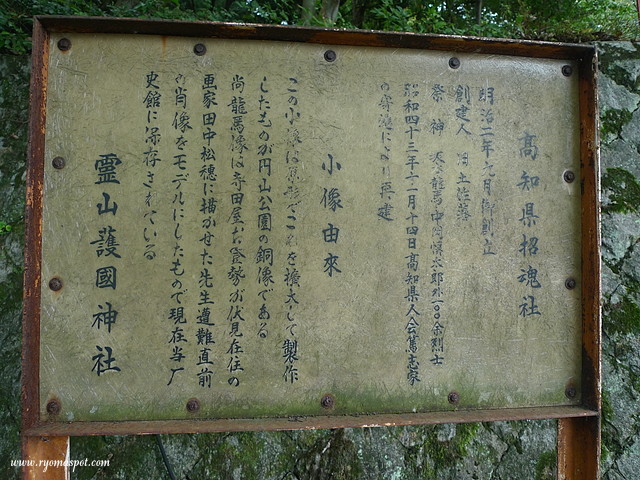 高知県招魂社
明治二年九月御創立
創建人 旧土佐藩
祭神 坂本龍馬・中岡慎太郎外一〇〇余烈士
昭和四十三年十一月十四日高知県人会篤志家
の寄進により再建
小像由來
この小像は原形でこれを擴大して製作
したものが円山公園の銅像である
尚龍馬像は寺田屋お登勢が伏見在住の
画家田中松穂に描かせた先生遭難直前
の肖像をモデルにしたもので現在当庁
史館に保存されている
霊山護國神社
www.ryomaspot.com